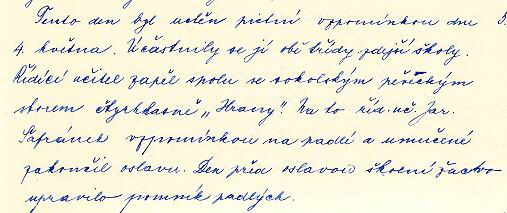 Tento den byl uctěn pietní vzpomínkou dne 5.
4. května. Účastnily se jí obě třídy zdejší školy.
Řídící učitel zapěl spolu se sokolským pěveckým
sborem "Hrany". Na to říd. uč. Jar.
Šafránek vzpomínkou na padlé a umučené
zakončil oslavu. Den před oslavou školní žactvo
upravilo pomník padlých.